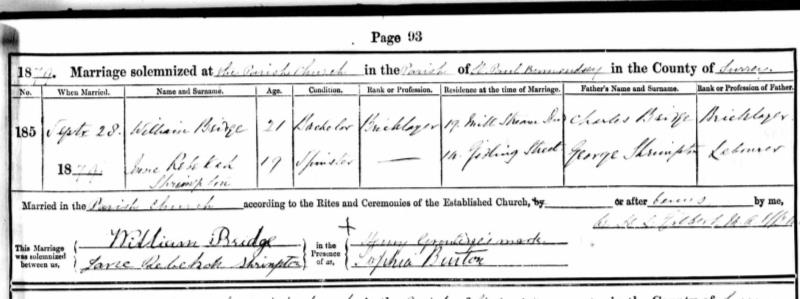 Page 93
1879. Marriage solemnized at the Parish Church in the Parish of St. Paul Bermondsey in the County of Surrey
No. When Married. Name and Surname. Age. Condition. Rank or Profession. Residence at the time of Marriage. Father's Name and Surname. Rank or Profession of Father.
185 Septr 28. William Bridge 21 Bachelor Bricklayer 19 Mill Stream Charles Bridge Bricklayer
1879. Jane Rebekah Shrimpton 19 Spinster — Street George Shrimpton Labourer
Married in the Parish Church according to the Rites and Ceremonies of the Established Church, by or after banns by me,
This Marriage was solemnized between us, William Bridge
Jane Rebekah Shrimpton
in the Presence of us, mark
Sophia Burton